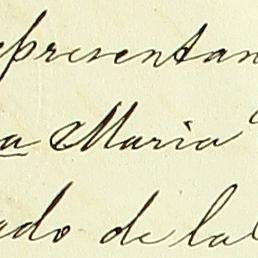 epresentan
a Maria
ado de la